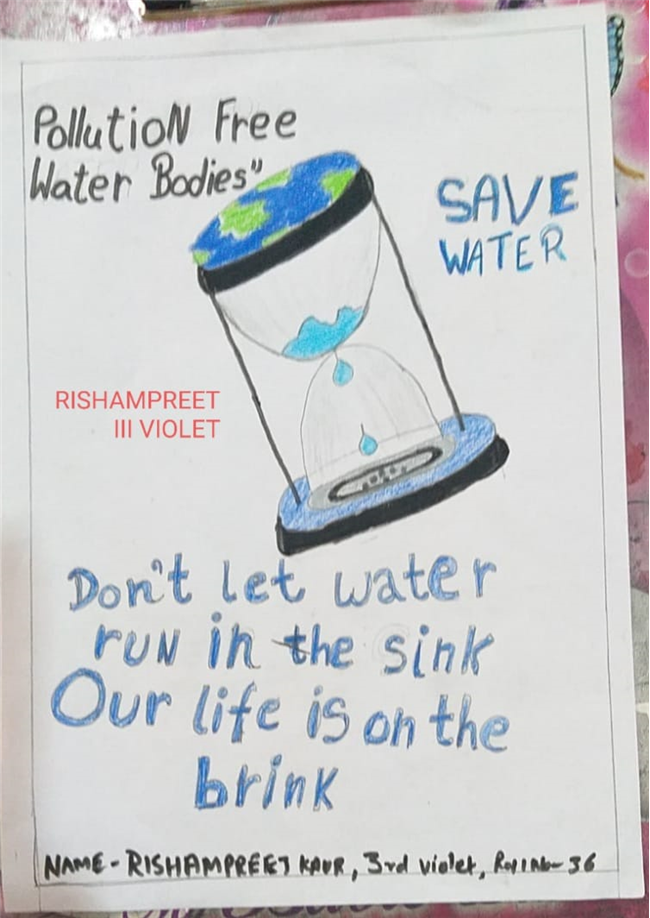 PollutioN Free
Water Bodies"
SAVE
WATER
RISHAMPREET
III VIOLET
Don't let water
run in the sink
Our life is on the
brink
NAME - RISHAMPREET KAUR, 3rd violet, Roll No- 36